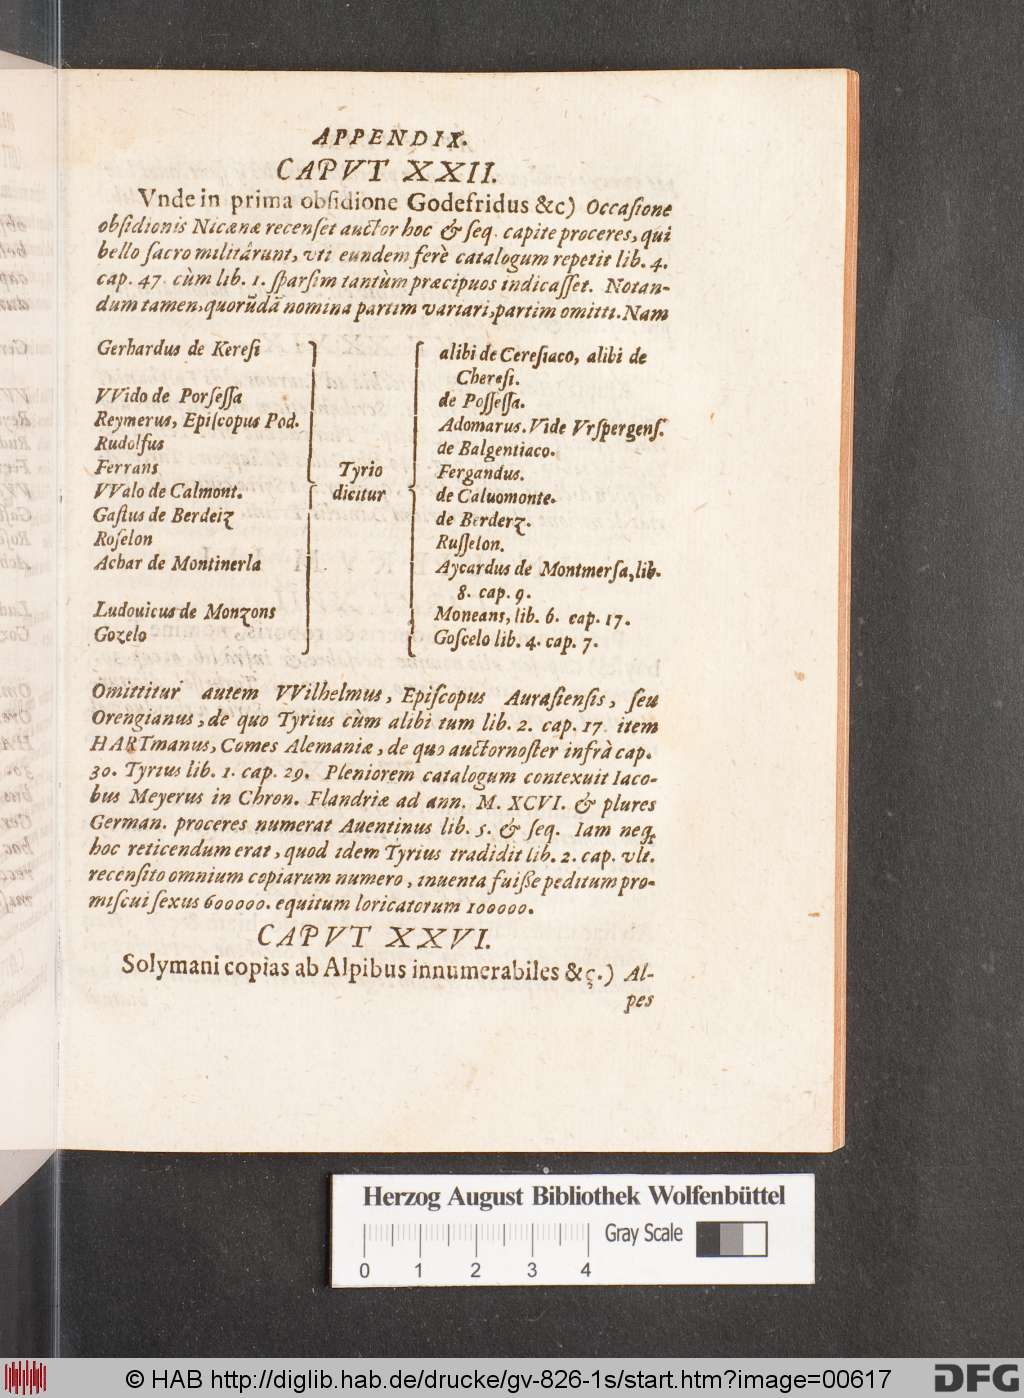 APPENDIX.
CAPVT XXII.
Vnde in prima obsidione Godefridus &c) Occasione
obsidionis Nicænæ recenset auctor hoc & seq. capite proceres, qui
bello sacro militârunt, vti eundem ferè catalogum repetit lib. 4.
cap. 47. cùm lib. 1. sparsim tantùm præcipuos indicasset. Notan-
dum tamen, quorūdā nomina partim variari, partim omitti. Nam
Gerhardus de Keresi
VVido de Porsessa
Reymerus, Episcopus Pod.
Rudolfus
Ferrans
VValo de Calmont.
Gastus de Berdeiz
Roselon
Acbar de Montinerla
Ludouicus de Monzons
Gozelo
Tyrio
dicitur
alibi de Ceresiaco, alibi de
Cheresi.
de Possessa.
Adomarus. Vide Vrspergens.
de Balgentiaco.
Fergandus.
de Caluomonte.
de Berderz.
Russelon.
Aycardus de Montmersa, lib.
8. cap. 9.
Moneans, lib. 6. cap. 17.
Goscelo lib. 4. cap. 7.
Omittitur autem VVilhelmus, Episcopus Aurasiensis, seu
Orengianus, de quo Tyrius cùm alibi tum lib. 2. cap. 17. item
HARTmanus, Comes Alemaniæ, de quo auctor noster infrà cap.
30. Tyrius lib. 1. cap. 29. Pleniorem catalogum contexuit Iaco-
bus Meyerus in Chron. Flandriæ ad ann. M. XCVI. & plures
German. proceres numerat Auentinus lib. 5. & seq. Iam neq;
hoc reticendum erat, quod idem Tyrius tradidit lib. 2. cap. vlt.
recensito omnium copiarum numero, inuenta fuiße peditum pro-
miscui sexus 600000. equitum loricatorum 100000.
CAPVT XXVI.
Solymani copias ab Alpibus innumerabiles &c.) Al-
pes
Herzog August Bibliothek Wolfenbüttel
Gray Scale
0 1 2 3 4
© HAB http://diglib.hab.de/drucke/gv-826-1s/start.htm?image=00617
DFG